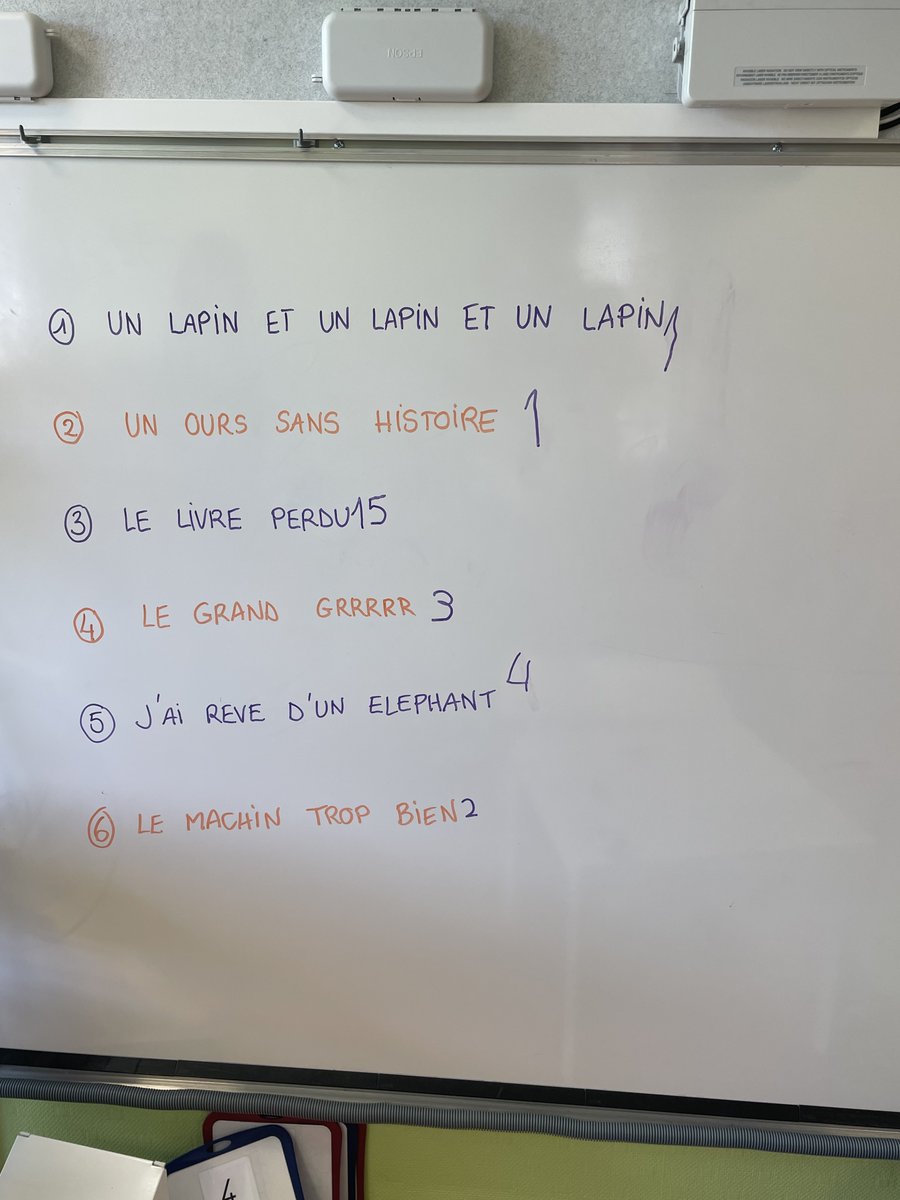 EPSON
① UN LAPIN ET UN LAPIN ET UN LAPIN 1
② UN OURS SANS HISTOIRE 1
③ LE LIVRE PERDU 15
④ LE GRAND GRRRRR 3
⑤ J'AI REVE D'UN ELEPHANT 4
⑥ LE MACHIN TROP BIEN 2
4